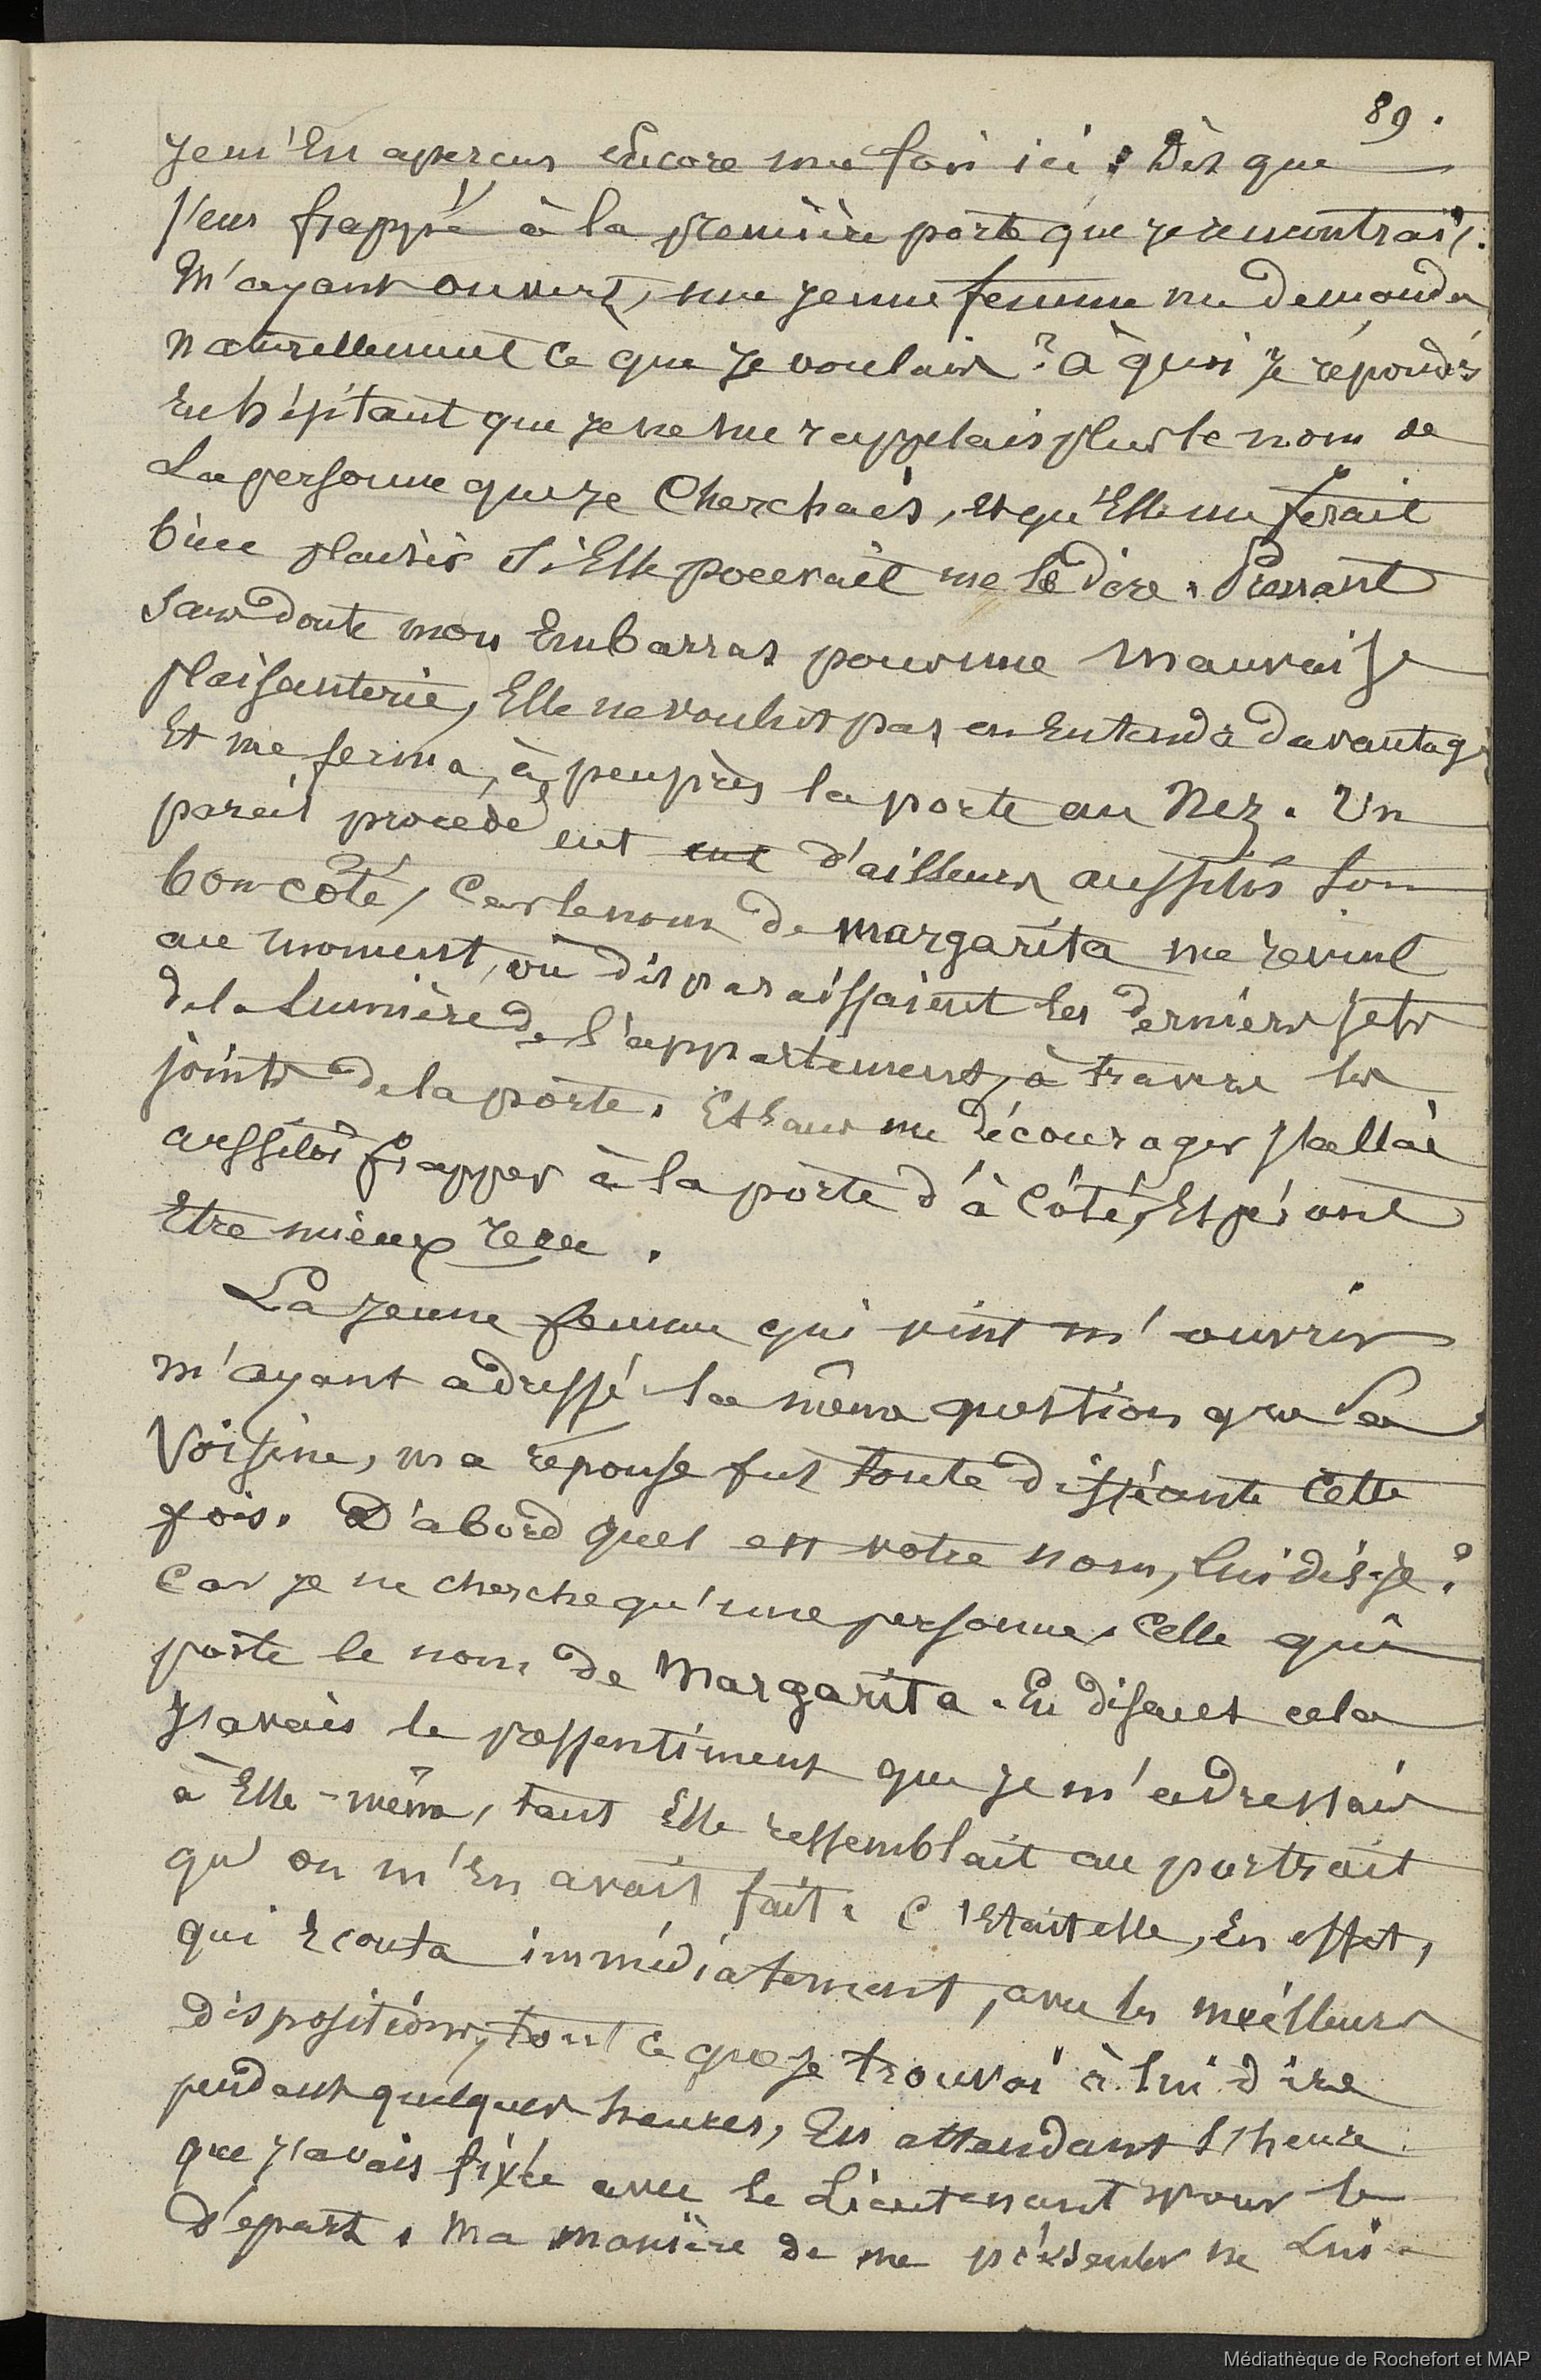 89.
Je m'En aperçus Encore une fois ici : Dès que
j'eus frappé à la première porte que je rencontrais.
M'ayant ouvert, une jeune femme me demanda
naturellement ce que je voulais ? à quoi je répondis
En hésitant que je ne me rappelais plus le nom de
La personne que je Cherchais, et qu'Elle me ferait
bien plaisir si Elle pouvait me le dire. Prenant
sans doute mon Embarras pour une mauvaise
plaisanterie, Elle ne voulut pas en Entendre davantage
Et me ferma, à peu près la porte au Nez. Un
pareil procédé eut eut d'ailleurs aussitôt son
bon côté, Car le nom de Margarita me revint
au moment, où disparaissaient les derniers jets
de la Lumière de l'appartement, à travers les
joints de la porte. Et sans me décourager j'allai
aussitôt frapper à la porte d'à Côté, Espérant
Etre mieux reçu.
La jeune femme qui vint m'ouvrir
m'ayant adressé la même question que sa
Voisine, ma réponse fut toute différante Cette
fois. D'abord quel est votre nom, lui dis-je ?
Car je ne cherche qu'une personne, Celle qui
porte le nom de Margarita. En disant cela
j'avais le pressentiment que je m'adressais
à Elle-même, tant Elle ressemblait au portrait
qu'on m'En avait fait. C'Etait elle, En effet,
qui Ecouta immédiatement, avec les meilleurs
dispositions, tout ce que je trouvai à lui dire
pendant quelques heures, En attendant l'heure
que j'avais fixée avec le Lieutenant pour le
départ. Ma manière de me présenter ne Lui
Médiathèque de Rochefort et MAP